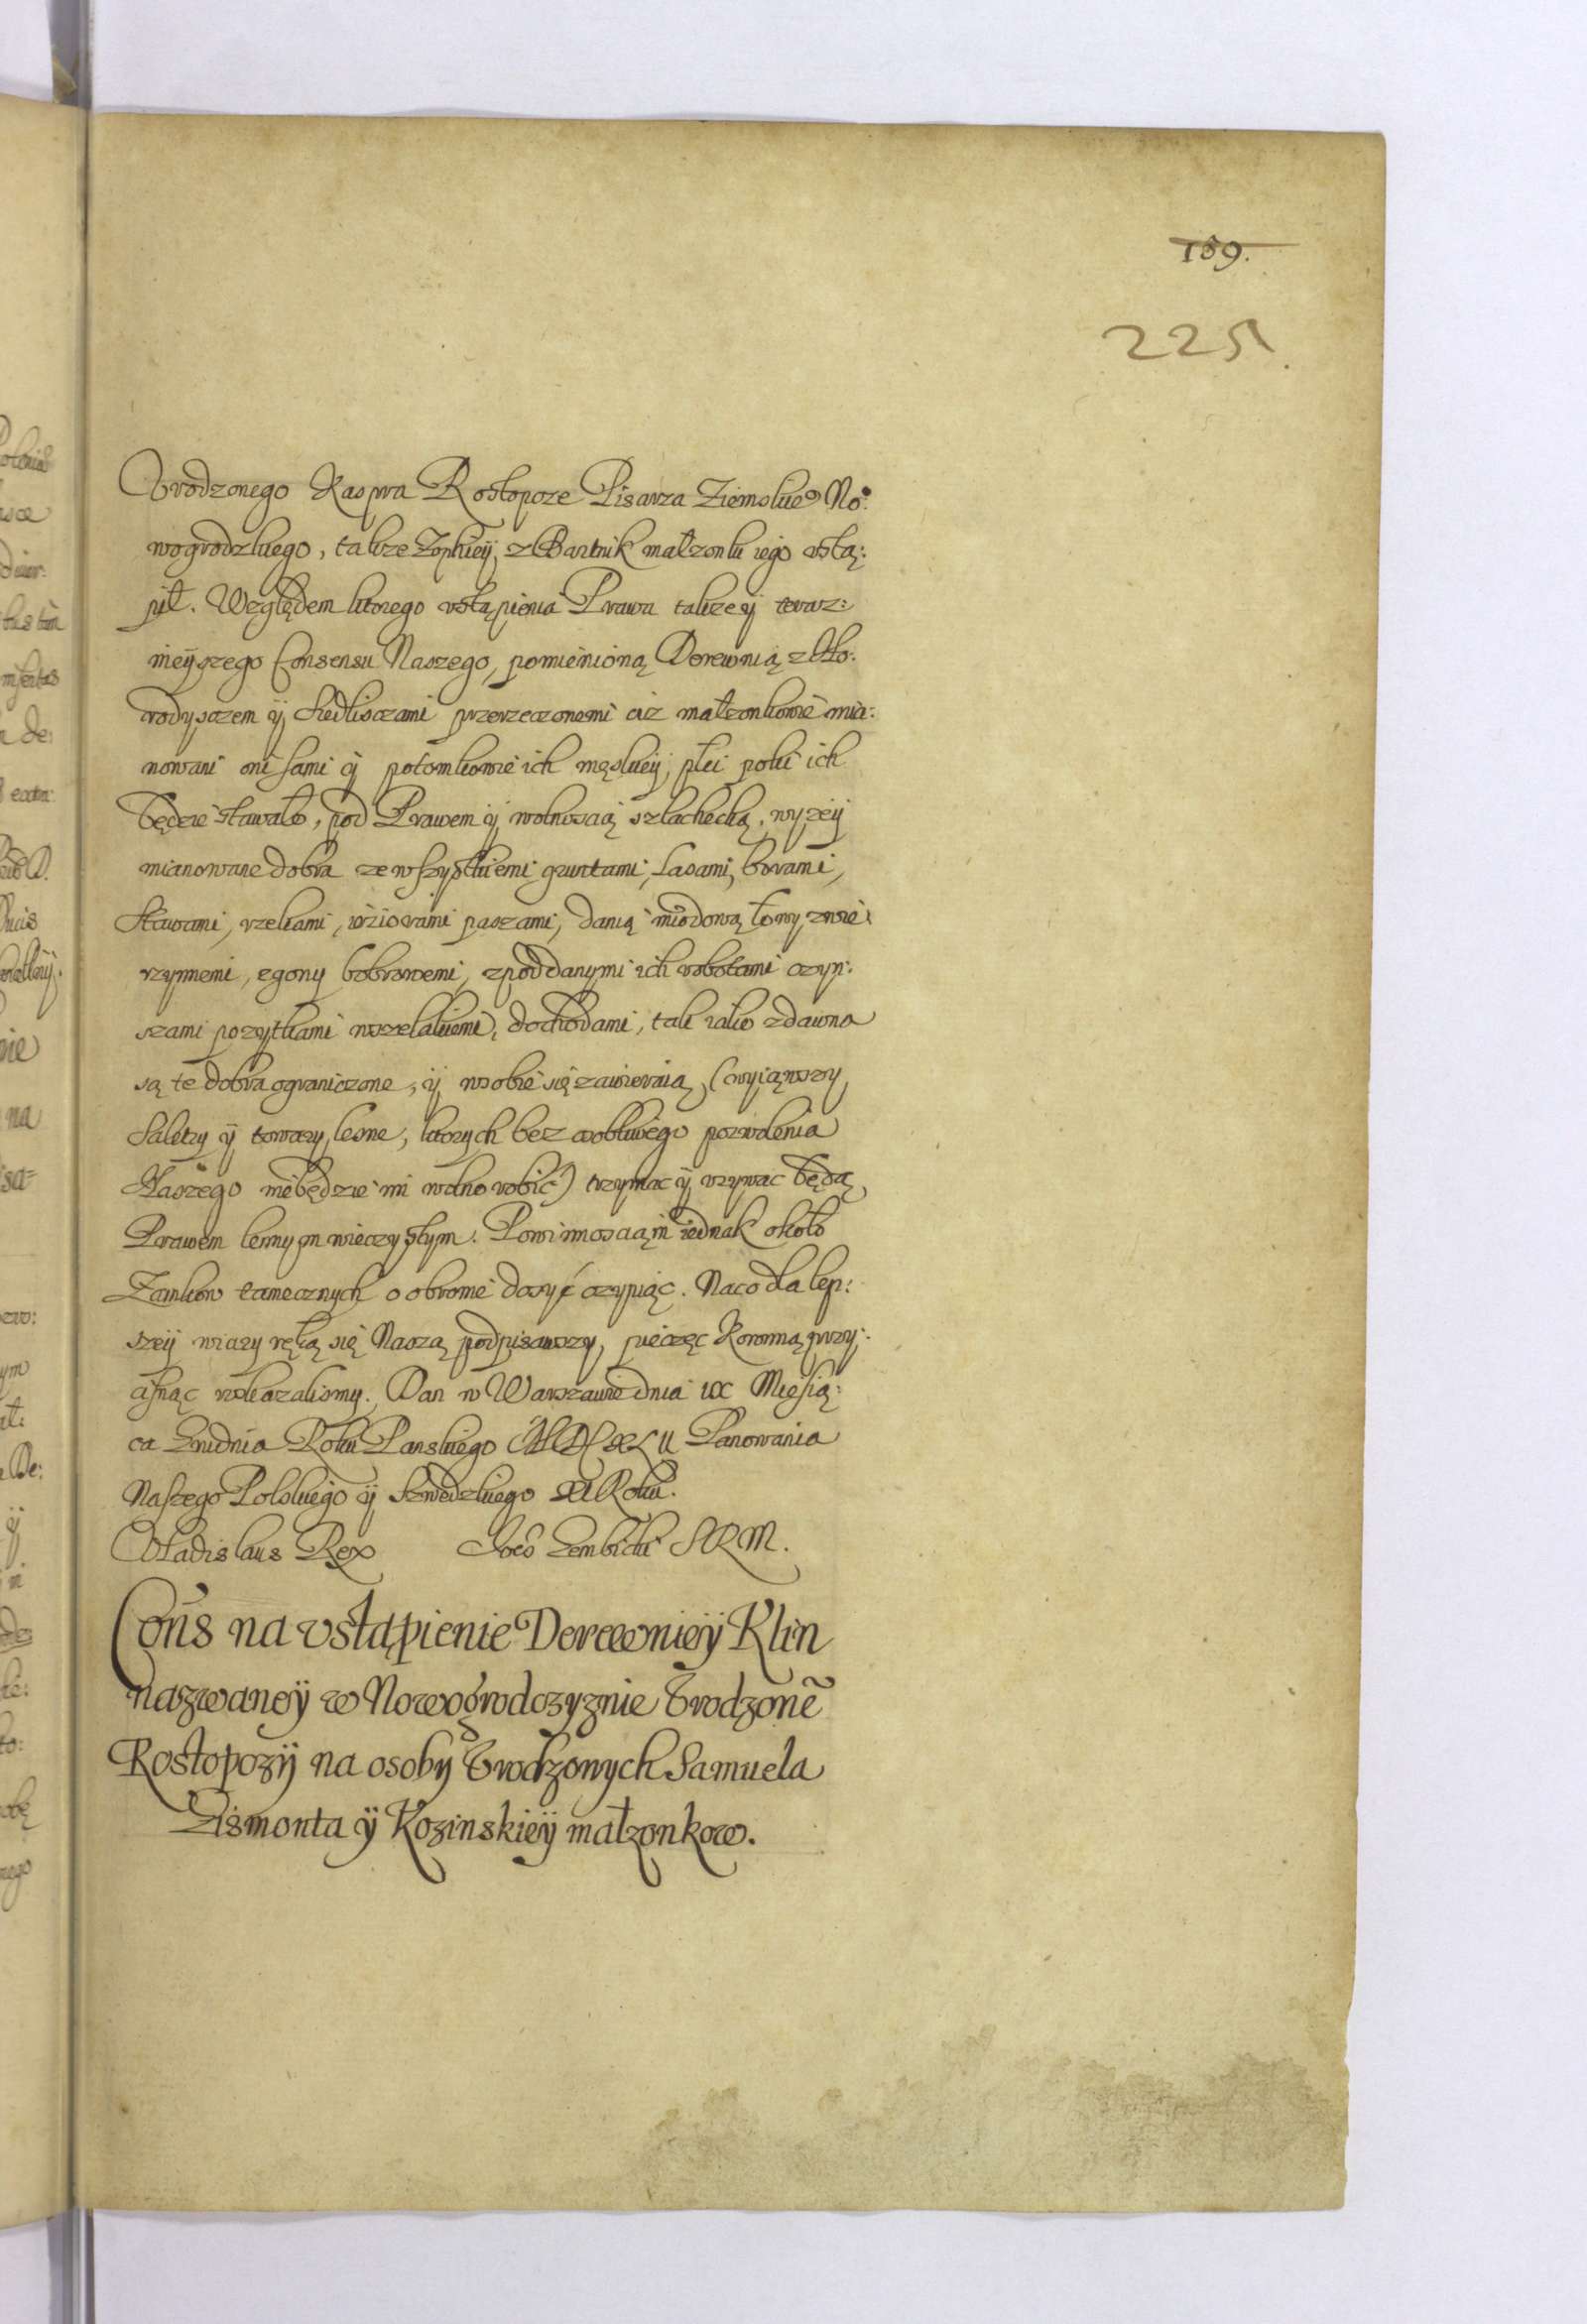 159.
225
Vrodzonego Kaspra Rostopcze Pisarza Ziemskieº No:
wogrodzkiego, takze Zophieÿ z Bartnik małzonki iego vstą:
pił. Względem ktorego vstąpienia Prawa takze ÿ teraz:
nieÿszego Consensu Naszego, pomienioną Derewnią z Ho:
rodyszczem ÿ siedliszczami przerzeczonemi ciz małzonkowie mia:
nowani oni sami ÿ potomkowie ich męskieÿ płci poki ich
będzie stawało, pod Prawem ÿ wolnoscią szlachecką, wyzeÿ
mianowane dobra ze wszystkiemi gruntami, Lasami, borami,
Stawami, rzekami, ieziorami paszami, danią miodową łowy zwie
rzynnemi, egony bobrowemi, z poddanymi ich robotami czyn:
szami pozytkami wszelakiemi, dochodami, tak iako zdawna
są te dobra ograniczone, ÿ w sobie się zawieraią, (wyiąwszy
Saletry ÿ towary lesne, ktorych bez osobliwego pozwolenia
Naszego nie będzie im wolno robic) trzymac ÿ vzywac będą
Prawem lennym wieczystym. Powinnosciąm iednak około
Zamkow tamecznych o obronie dosyć czyniąc. Na co dla lep:
szeÿ wiary ręką się Naszą podpisawszy, pieczęc Koronną przy:
cisnąc roskazalismy. Dan w Warszawie dnia IX Miesią:
ca Grudnia Roku Panskiego MDCXLII Panowania
Naszego Polskiego ÿ Szwedzkiego XI Roku.
Vladislaus Rex Gembicki SRM.
Cons na vstąpienie Derewnieÿ Klin
nazwaneÿ w Nowogrodczyznie Vrodzonẽ
Rostopczÿ na osobÿ Vrodzonych Samuela
Zismonta ÿ Kozinskieÿ małzonkow.